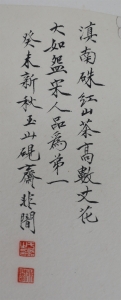 滇南硃紅山茶高數丈花
大如盌宋人品為第一
癸未新秋玉山硯齋非闇